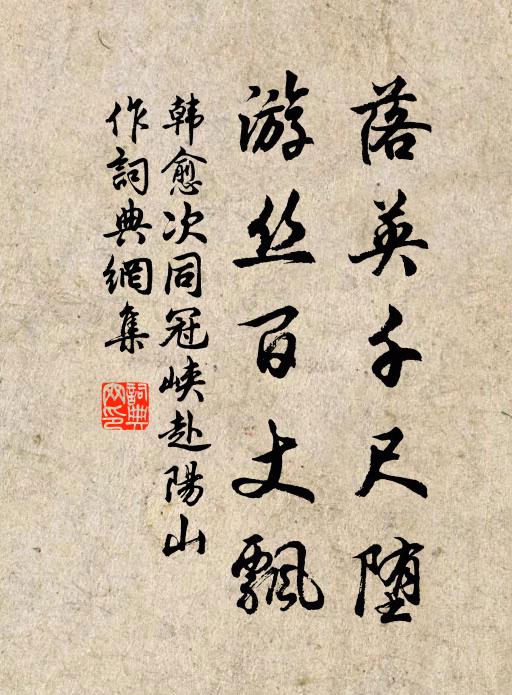 落英千尺堕
游丝百丈飘
韩愈次同冠峡赴陽山
作詞典網集
詞典網印